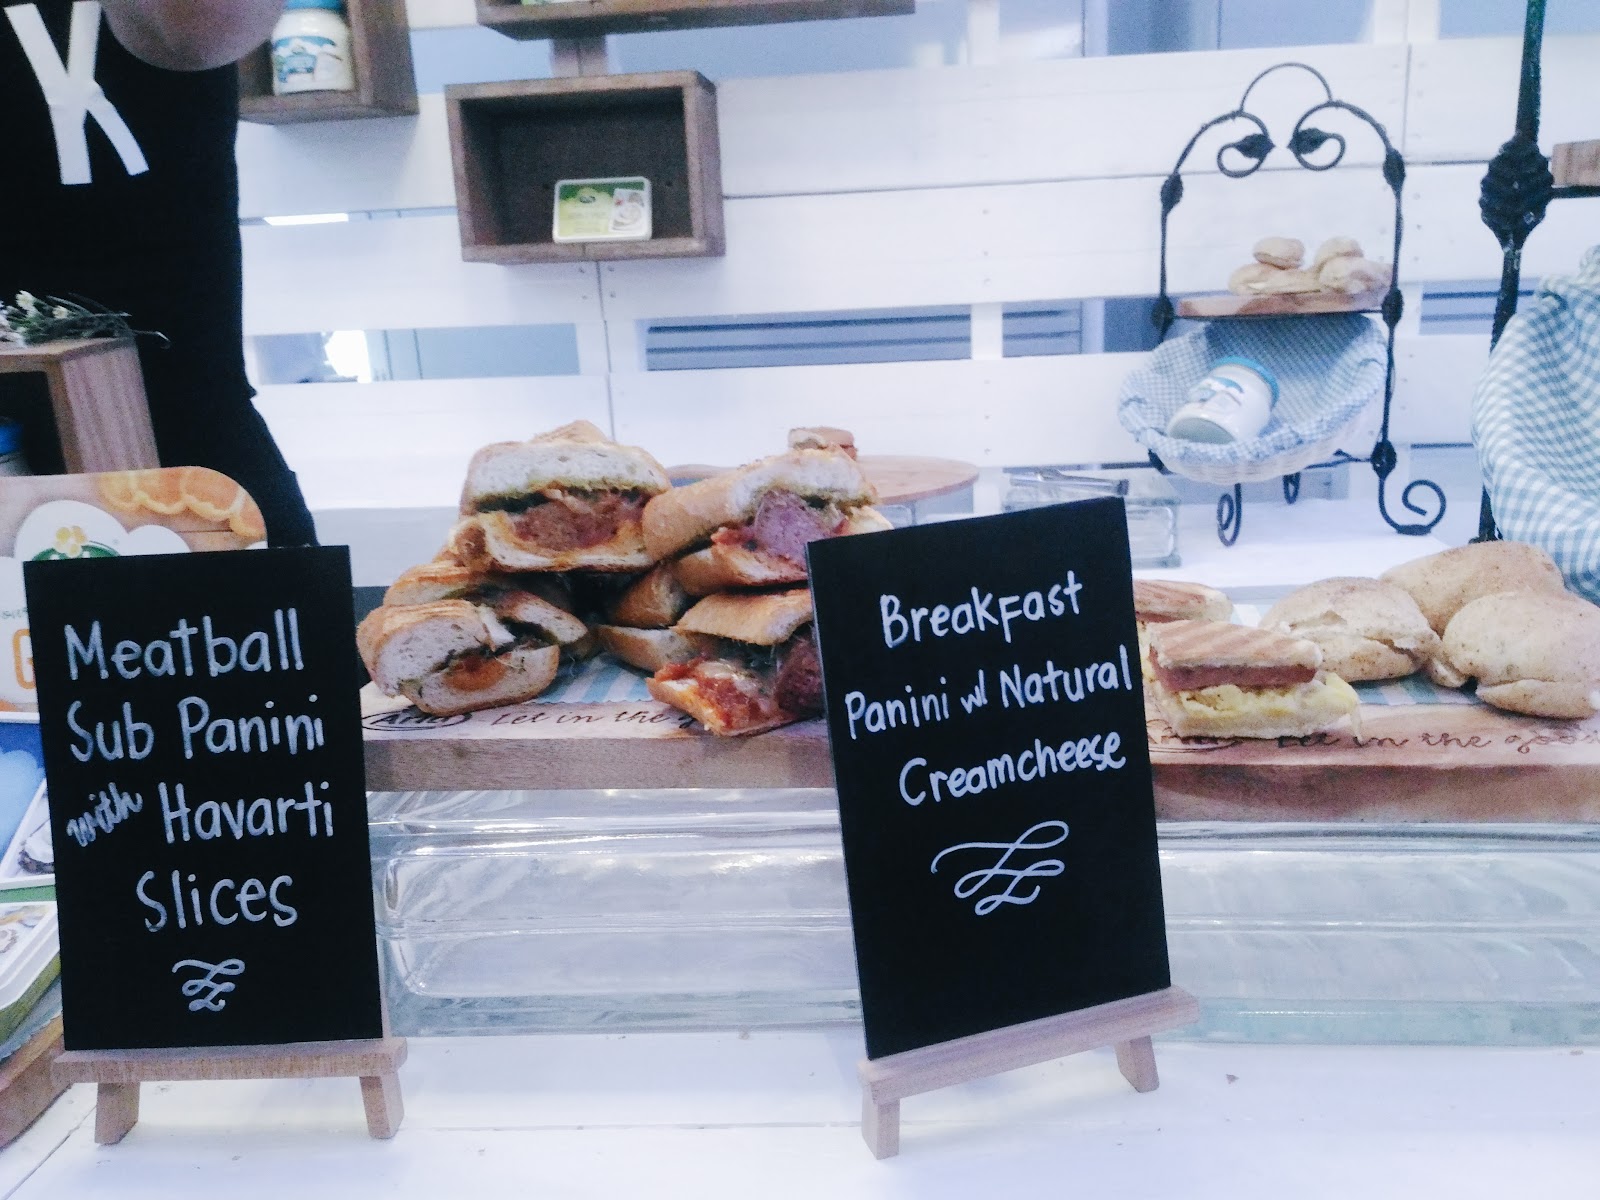 Meatball
Sub Panini
with Havarti
Slices
Breakfast
Panini w/ Natural
Creamcheese
Arla Let in the g
Let in the goo